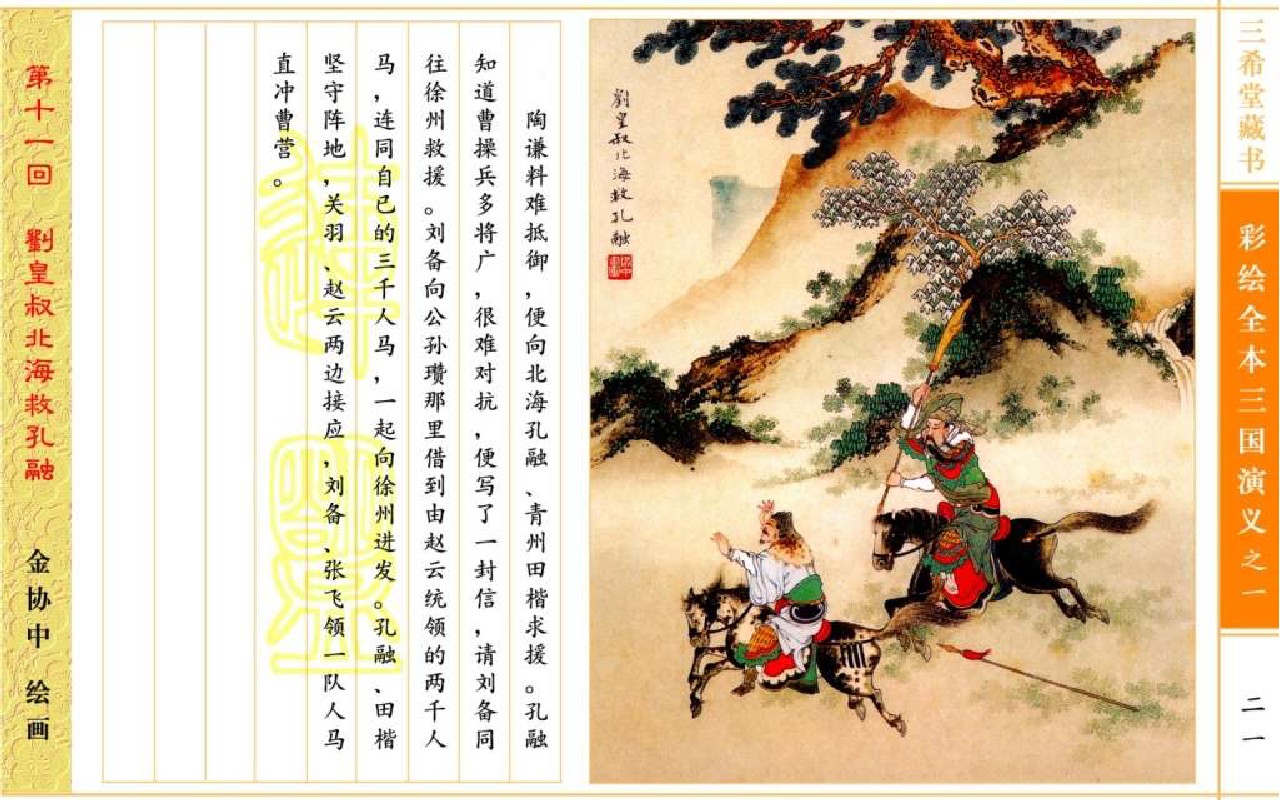 三希堂藏书
彩绘全本三国演义之一
二一
劉皇叔北海救孔融
陶谦料难抵御，便向北海孔融、青州田楷求援。孔融
知道曹操兵多将广，很难对抗，便写了一封信，请刘备同
往徐州救援。刘备向公孙瓒那里借到由赵云统领的两千人
马，连同自己的三千人马，一起向徐州进发。孔融、田楷
坚守阵地，关羽、赵云两边接应，刘备、张飞领一队人马
直冲曹营。
第十一回 劉皇叔北海救孔融
金协中 绘画